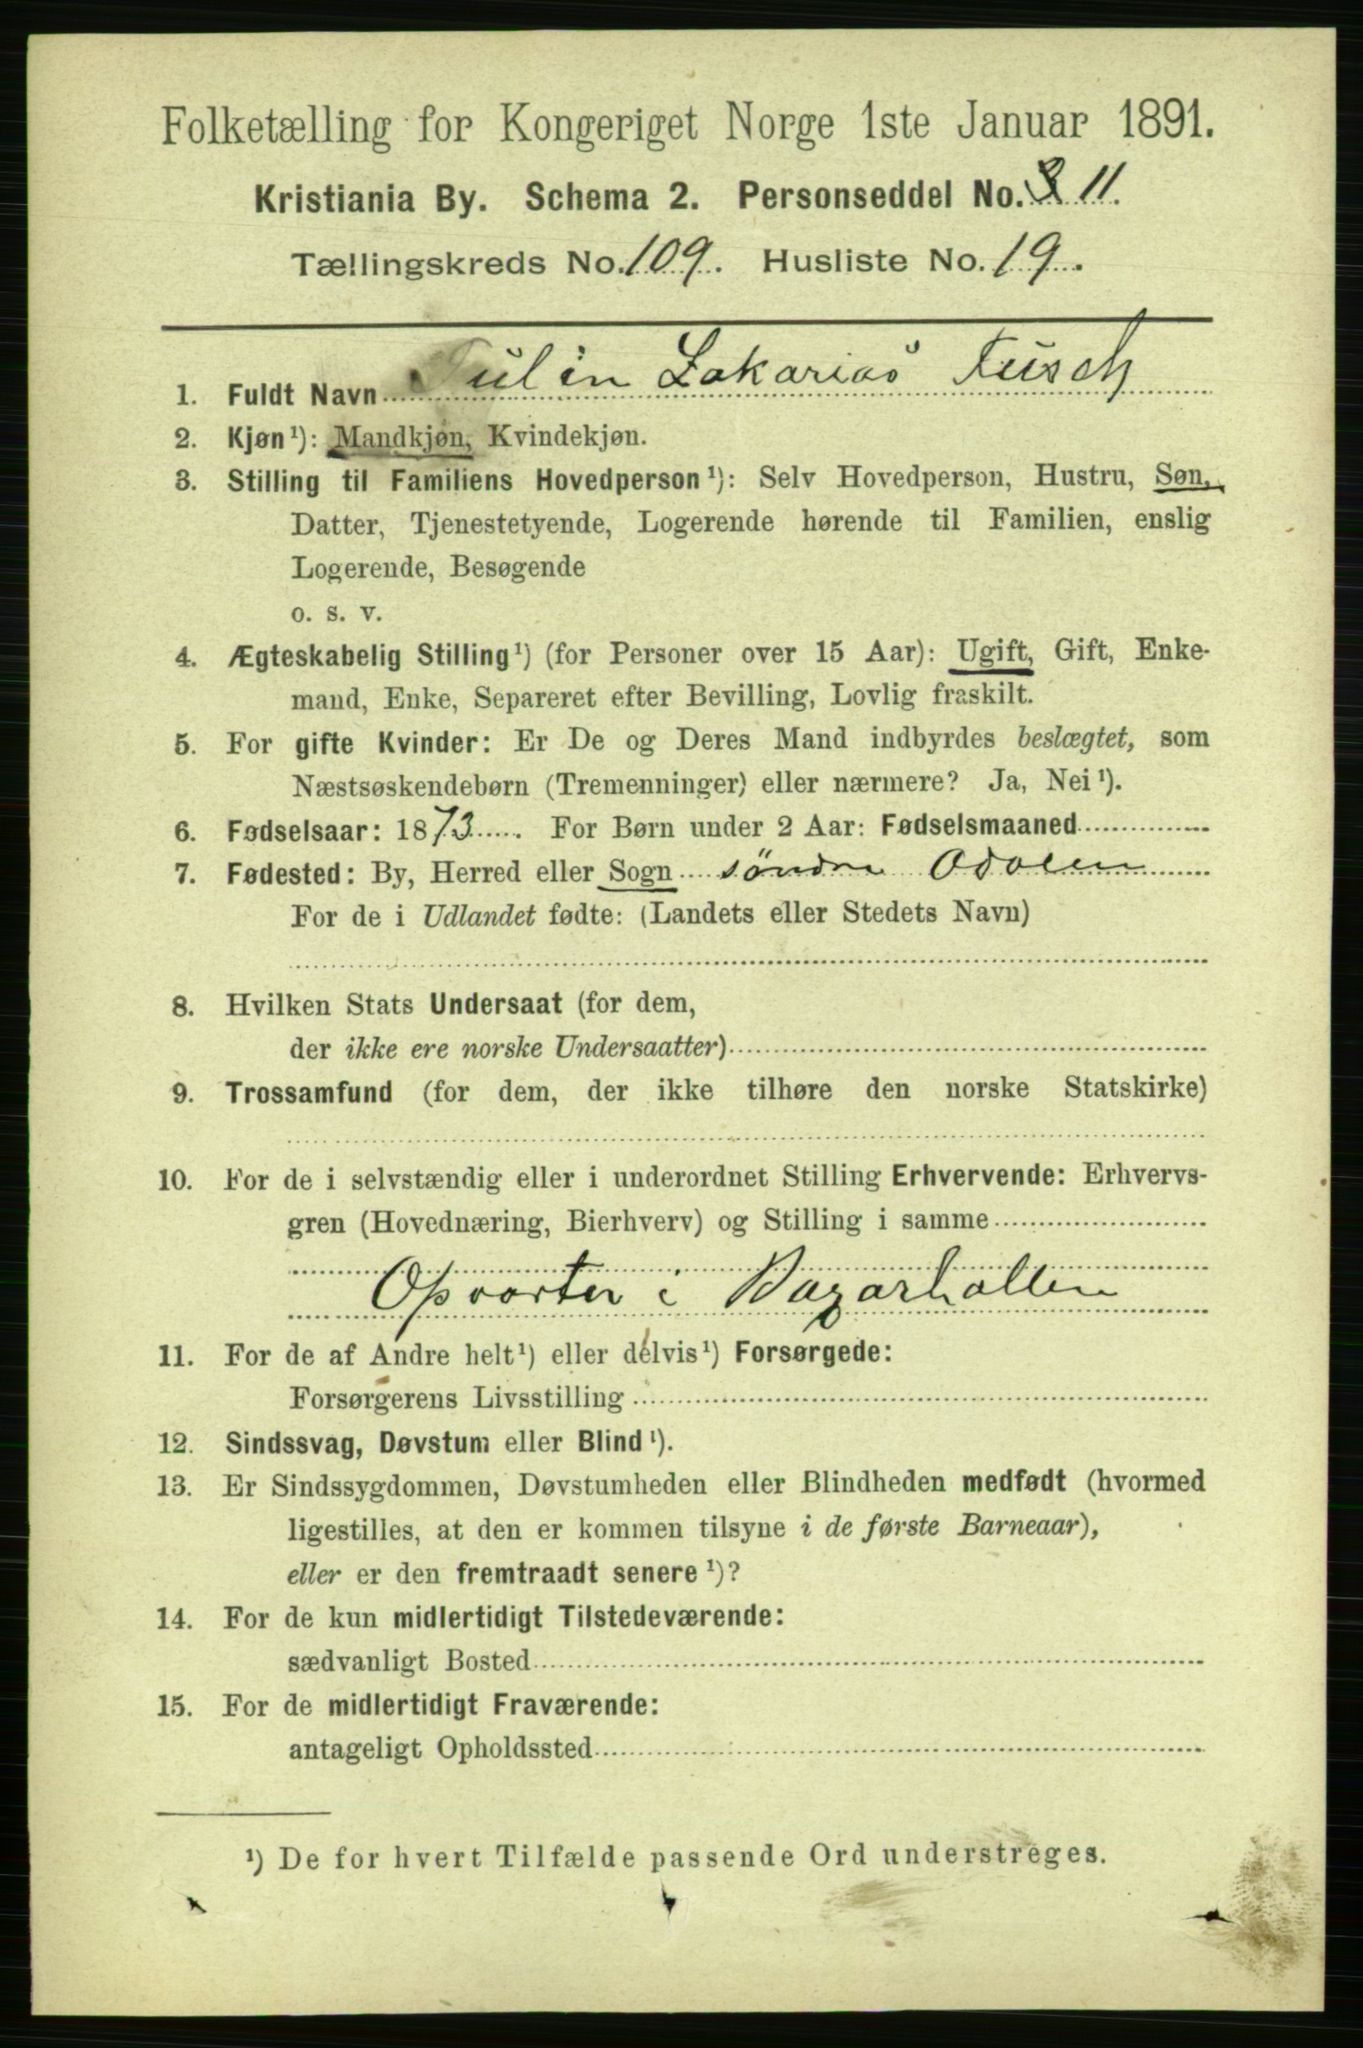 Folketælling for Kongeriget Norge 1ste Januar 1891.
Kristiania By. Schema 2. Personseddel No. 11.
Tællingskreds No. 109. Husliste No. 19.
1. Fuldt Navn Tulin Zakarias Tusch
2. Kjøn¹): Mandkjøn, Kvindekjøn.
3. Stilling til Familiens Hovedperson¹): Selv Hovedperson, Hustru, Søn,
Datter, Tjenestetyende, Logerende hørende til Familien, enslig
Logerende, Besøgende
o. s. v.
4. Ægteskabelig Stilling¹) (for Personer over 15 Aar): Ugift, Gift, Enke-
mand, Enke, Separeret efter Bevilling, Lovlig fraskilt.
5. For gifte Kvinder: Er De og Deres Mand indbyrdes beslægtet, som
Næstsøskendebørn (Tremenninger) eller nærmere? Ja, Nei¹).
6. Fødselsaar: 1873. For Børn under 2 Aar: Fødselsmaaned
7. Fødested: By, Herred eller Sogn söndre Odalen
For de i Udlandet fødte: (Landets eller Stedets Navn)
8. Hvilken Stats Undersaat (for dem,
der ikke ere norske Undersaatter)
9. Trossamfund (for dem, der ikke tilhøre den norske Statskirke)
10. For de i selvstændig eller i underordnet Stilling Erhvervende: Erhvervs-
gren (Hovednæring, Bierhverv) og Stilling i samme
Opvarter i Bazarhallen
11. For de af Andre helt¹) eller delvis¹) Forsørgede:
Forsørgerens Livsstilling
12. Sindssvag, Døvstum eller Blind¹).
13. Er Sindssygdommen, Døvstumheden eller Blindheden medfødt (hvormed
ligestilles, at den er kommen tilsyne i de første Barneaar),
eller er den fremtraadt senere¹)?
14. For de kun midlertidigt Tilstedeværende:
sædvanligt Bosted
15. For de midlertidigt Fraværende:
antageligt Opholdssted
¹) De for hvert Tilfælde passende Ord understreges.